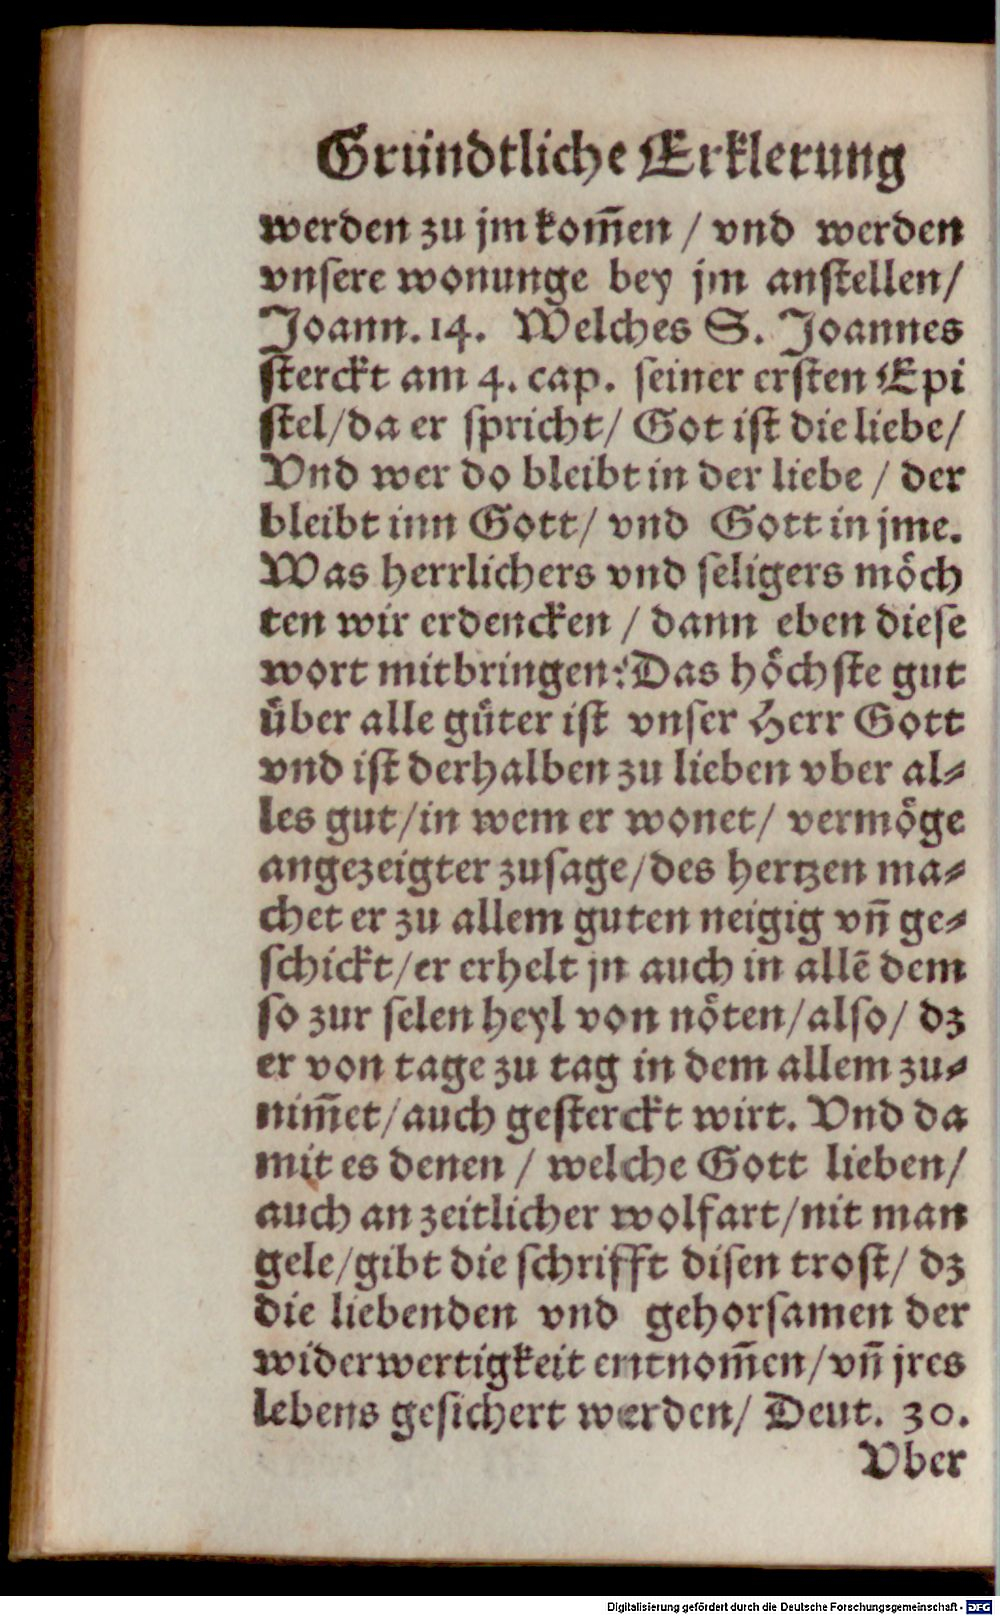 Gründtliche Erklerung
werden zu jm kom̃en / vnd werden
vnsere wonunge bey jm anstellen/
Joann. 14. Welches S. Joannes
sterckt am 4. cap. seiner ersten Epi
stel/da er spricht/ Got ist die liebe/
Vnd wer do bleibt in der liebe / der
bleibt inn Gott/ vnd Gott in jme.
Was herrlichers vnd seligers möch
ten wir erdencken / dann eben diese
wort mitbringen: Das höchste gut
über alle güter ist vnser Herr Gott
vnd ist derhalben zu lieben vber al⸗
les gut/in wem er wonet/ vermöge
angezeigter zusage/des hertzen ma⸗
chet er zu allem guten neigig vñ ge⸗
schickt/er erhelt jn auch in allẽ dem
so zur selen heyl von nöten/also/ dz
er von tage zu tag in dem allem zu⸗
nim̃et/auch gesterckt wirt. Vnd da
mit es denen / welche Gott lieben/
auch an zeitlicher wolfart/nit man
gele/gibt die schrifft disen trost/ dz
die liebenden vnd gehorsamen der
widerwertigkeit entnom̃en/vñ jres
lebens gesichert werden/ Deut. 30.
Vber
Digitalisierung gefördert durch die Deutsche Forschungsgemeinschaft - DFG